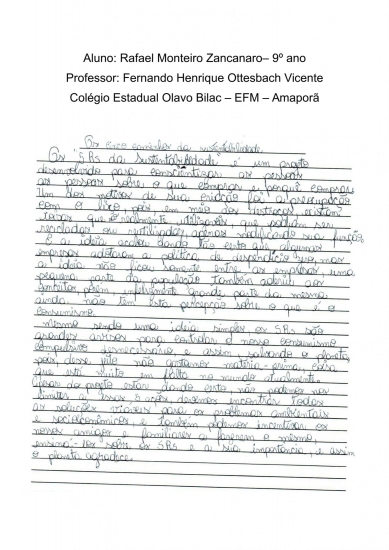 Aluno: Rafael Monteiro Zancanaro– 9º ano
Professor: Fernando Henrique Ottesbach Vicente
Colégio Estadual Olavo Bilac – EFM – Amaporã
Os cinco caminhos da sustentabilidade.
Os 5Rs da sustentabilidade é um projeto
desenvolvido para conscientizar as pessoas
as pessoas sobre o que comprar e porquê comprar.
Um dos motivos de sua criação foi a preocupação
com o lixo, pois em meio dos
que normalmente utilizamos, que podiam ser
reciclados ou reutilizados, apenas modificando sua função.
E a ideia acabou dando tão certo que algumas
empresas adotaram a política de desperdício zero, mas
a ideia não ficou somente entre as empresas, uma
pequena parte da população também aderiu aos
conceitos, porém, infelizmente grande parte da mesma
ainda não tem esta percepção sobre o que é o
consumismo.
Mesmo sendo uma ideia simples os 5Rs são
grandes avisos para controlar o nosso consumismo
compulsivo desnecessário e assim, salvando o planeta,
pois desse jeito não gastamos matéria-prima, coisa
que está muito em falta no mundo atualmente.
Apesar do projeto estar dando certo não podemos nos
limitar a essas 5 ações, devemos encontrar todas
as soluções viáveis para os problemas ambientais
e socioeconômicos, e também podemos incentivar os
nossos amigos e familiares a fazerem o mesmo,
ensiná-los sobre os 5Rs e a sua importância, e assim
o planeta agradece.